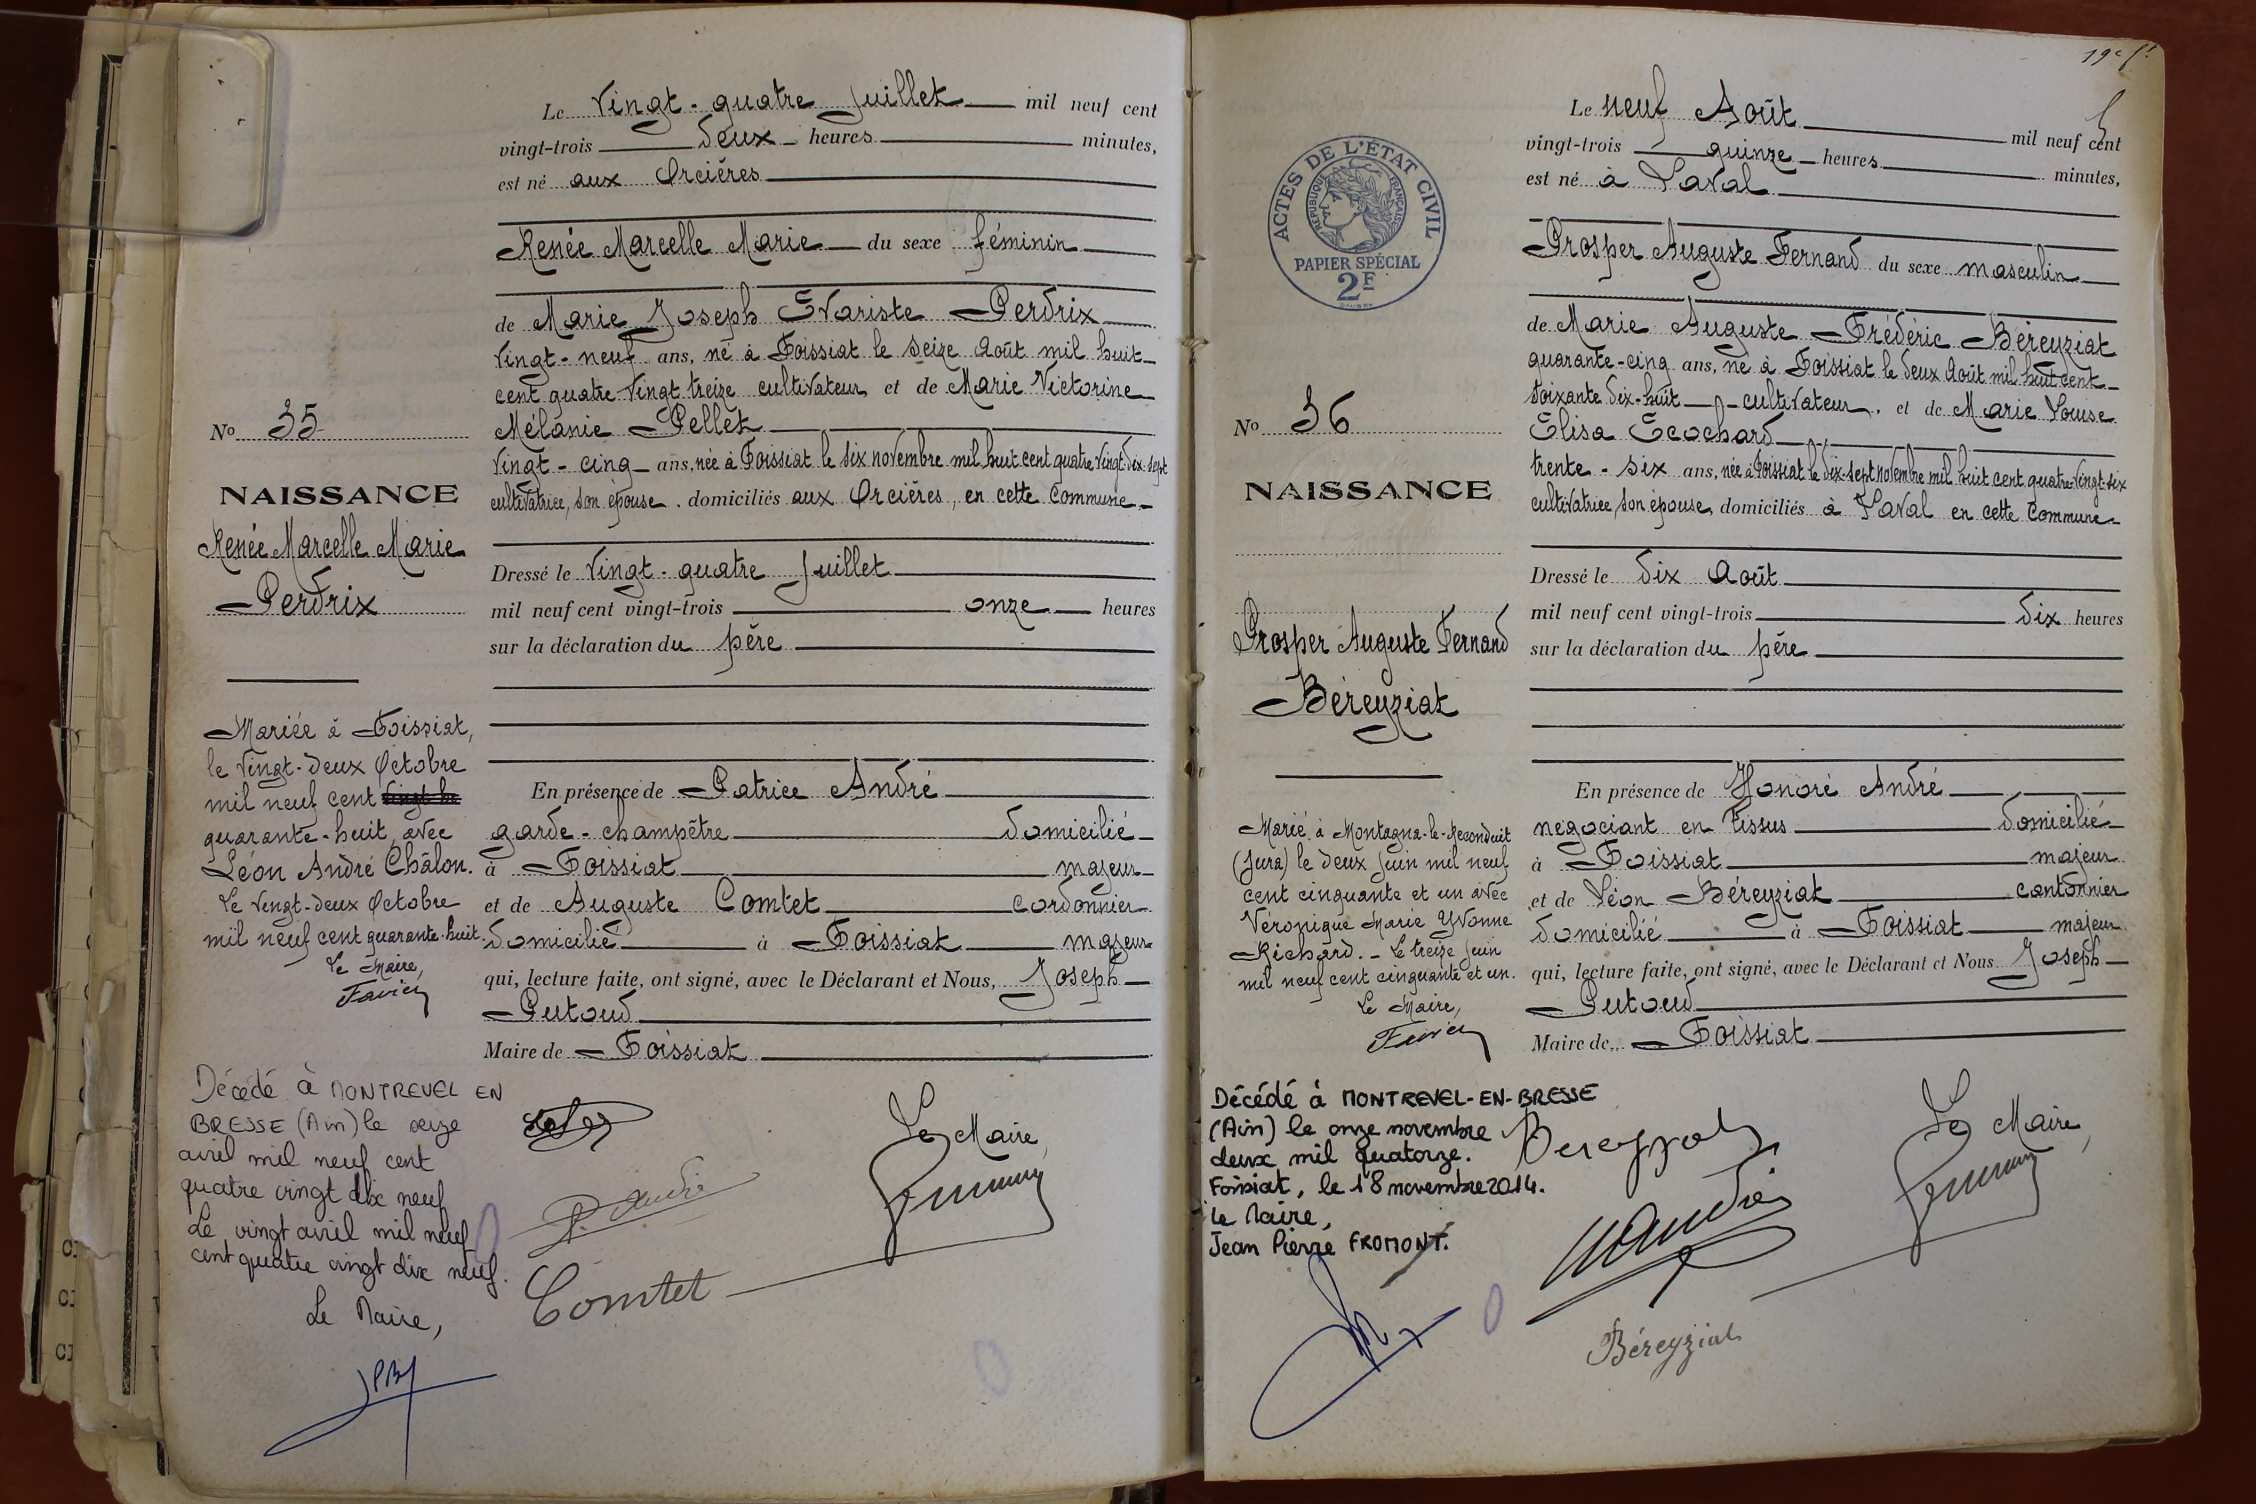 Le Vingt-quatre Juillet mil neuf cent
vingt-trois deux heures minutes,
est né aux Orcières
Renée Marcelle Marie du sexe féminin
de Marie Joseph Evariste Perdrix
Vingt-neuf ans, né à Foissiat le seize Août mil huit
cent quatre Vingt treize cultivateur et de Marie Victorine
Mélanie Pellet
Vingt-cinq ans, née à Foissiat le six novembre mil huit cent quatre Vingt-dix-sept
cultivatrice, son épouse. domiciliés aux Orcières, en cette Commune
Dressé le Vingt-quatre Juillet
mil neuf cent vingt-trois onze heures
sur la déclaration du père
En présence de Patrice André
garde-champêtre domicilié
à Foissiat majeur
et de Auguste Comtet cordonnier
domicilié à Foissiat majeur
qui, lecture faite, ont signé, avec le Déclarant et Nous, Joseph
Putoud
Maire de Foissiat
Le Maire,
P. André
Comtet
No 35
NAISSANCE
Renée Marcelle Marie
Perdrix
Mariée à Foissiat,
le Vingt-deux Octobre
mil neuf cent
quarante-huit, avec
Léon André Châlon.
Le Vingt-deux Octobre
mil neuf cent quarante-huit.
Le Maire,
Décédé à MONTREVEL EN
BRESSE (Ain) le seize
avril mil neuf cent
quatre vingt dix neuf
Le vingt avril mil neuf
cent quatre vingt dix neuf.
Le Maire,
19e ft
Le neuf Août mil neuf cent
vingt-trois quinze heures minutes,
est né à Laval
Prosper Auguste Fernand du sexe masculin
de Marie Auguste Frédéric Béreyziat
quarante-cinq ans, né à Foissiat le deux Août mil huit cent
soixante dix-huit cultivateur, et de Marie Louise
Elisa Ecochard
trente-six ans, née à Foissiat le dix-sept novembre mil huit cent quatre-Vingt-six
cultivatrice, son épouse, domiciliés à Laval en cette Commune
Dressé le dix Août
mil neuf cent vingt-trois dix heures
sur la déclaration du père
En présence de Honoré André
négociant en tissus domicilié
à Foissiat majeur
et de Léon Béreyziat cantonnier
domicilié à Foissiat majeur
qui, lecture faite, ont signé, avec le Déclarant et Nous Joseph
Putoud
Maire de Foissiat
Le Maire,
Béreyziat
ACTES DE L'ÉTAT CIVIL
RÉPUBLIQUE FRANÇAISE
PAPIER SPÉCIAL
2F
No 36
NAISSANCE
Prosper Auguste Fernand
Béreyziat
Marié à Montagna-le-Reconduit
(Jura) le deux Juin mil neuf
cent cinquante et un avec
Véronique Marie Yvonne
Richard. - Le treize Juin
mil neuf cent cinquante et un.
Le Maire,
Décédé à MONTREVEL-EN-BRESSE
(Ain) le onze novembre
deux mil quatorze.
Foissiat, le 18 novembre 2014.
Le Maire,
Jean Pierre FROMONT.